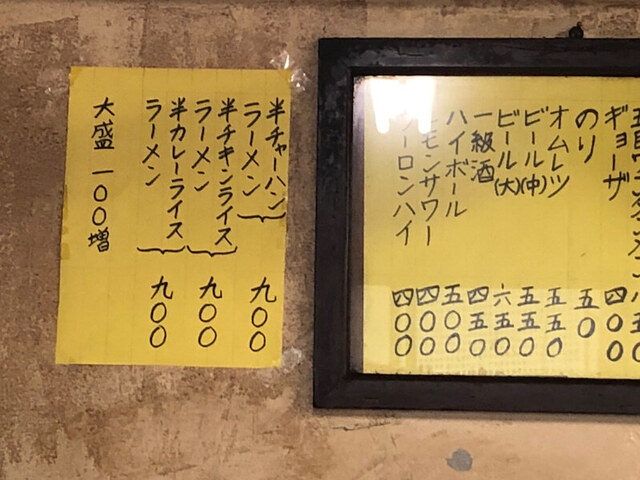 ギョーザ 四〇〇
のり 五〇
オムレツ 五五〇
ビール(中) 五五〇
ビール(大) 六五〇
一級酒 四五〇
ハイボール 五〇〇
レモンサワー 四〇〇
ウーロンハイ 四〇〇
半チャーハン
ラーメン 九〇〇
半チキンライス
ラーメン 九〇〇
半カレーライス
ラーメン 九〇〇
大盛 一〇〇増